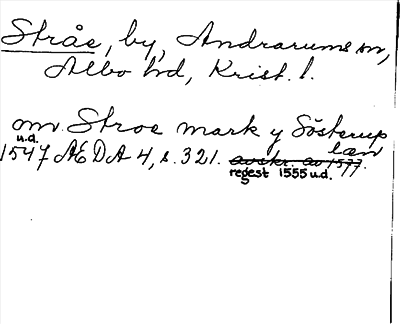 Stråe, by, Andrarums sn,
Albo hd, Krist. l.
om Stroe mark y Sösterup
læn
u.d.
1547 ÆDA 4, s. 321. avskr. av 1577.
regest 1555 u.d.